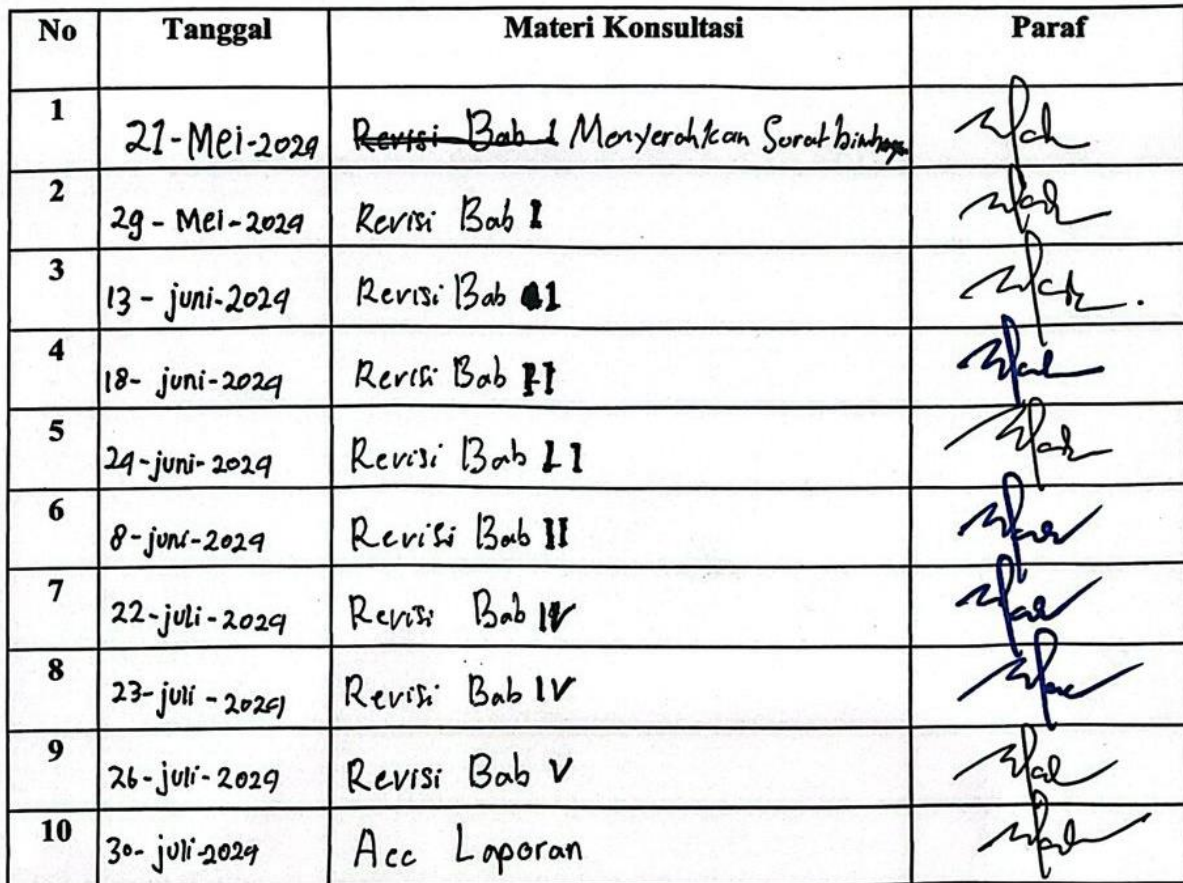 No Tanggal Materi Konsultasi Paraf
1 21-Mei-2024 ~~Revisi Bab 1~~ Menyerahkan Surat bimbingan
2 29-Mei-2024 Revisi Bab I
3 13-juni-2024 Revisi Bab II
4 18-juni-2024 Revisi Bab II
5 24-juni-2024 Revisi Bab II
6 8-juni-2024 Revisi Bab II
7 22-juli-2024 Revisi Bab IV
8 23-juli-2024 Revisi Bab IV
9 26-juli-2024 Revisi Bab V
10 30-juli-2024 Acc Laporan